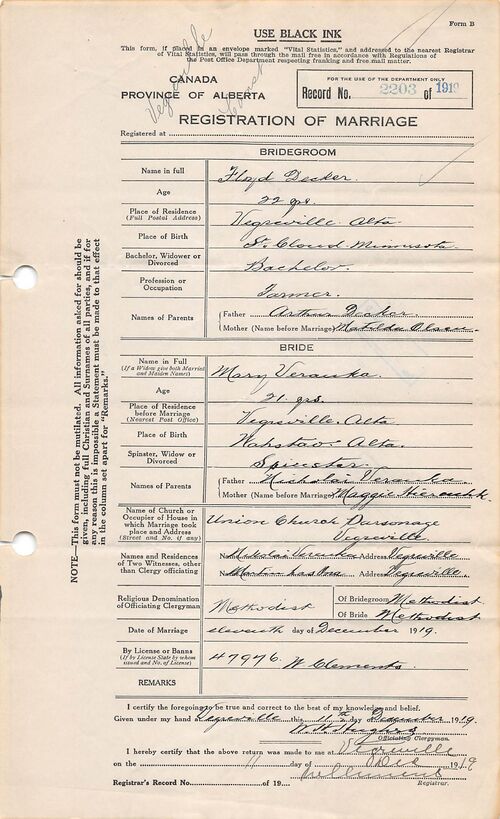 Form B
USE BLACK INK
This form, if placed in an envelope marked "Vital Statistics," and addressed to the nearest Registrar
of Vital Statistics, will pass through the mail free in accordance with Regulations of
the Post Office Department respecting franking and free mail matter.
Vegreville
CANADA
PROVINCE OF ALBERTA
FOR THE USE OF THE DEPARTMENT ONLY
Record No. 2203 of 1919
REGISTRATION OF MARRIAGE
Registered at
BRIDEGROOM
Name in full Floyd Decker.
Age 22 yrs.
Place of Residence (Full Postal Address) Vegreville Alta
Place of Birth St. Cloud Minnesota
Bachelor, Widower or Divorced Bachelor.
Profession or Occupation Farmer.
Names of Parents
Father Arthur Decker
Mother (Name before Marriage) Matilda Olsen
BRIDE
Name in Full (If a Widow give both Married and Maiden Names) Mary
Age 21 yrs.
Place of Residence before Marriage (Nearest Post Office) Vegreville, Alta
Place of Birth Wahstao Alta.
Spinster, Widow or Divorced Spinster
Names of Parents
Father Nicholai
Mother (Name before Marriage) Maggie
Name of Church or Occupier of House in which Marriage took place and Address (Street and No. if any) Union Church Parsonage
Vegreville.
Names and Residences of Two Witnesses, other than Clergy officiating
Nikolai Address Vegreville
Address Vegreville.
Religious Denomination of Officiating Clergyman Methodist
Of Bridegroom Methodist
Of Bride Methodist
Date of Marriage eleventh day of December 1919.
By License or Banns (If by License State by whom issued and No. of License) 47976 W Clements
REMARKS
I certify the foregoing to be true and correct to the best of my knowledge and belief.
Given under my hand at Vegreville this 11th day December 1919
Officiating Clergyman.
I hereby certify that the above return was made to me at Vegreville
on the 11 day of Dec 1919
W Clements
Registrar.
Registrar's Record No. of 19
NOTE—This form must not be mutilated. All information asked for should be
given, including full Christian and Surnames of all parties, and if for
any reason this is impossible a Statement must be made to that effect
in the column set apart for "Remarks."